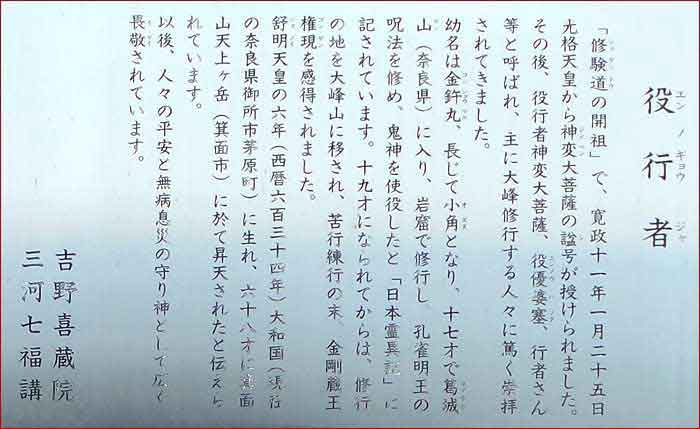 役行者
エンノギョウジャ
「修験道の開祖」で、寛政十一年一月二十五日
光格天皇から神変大菩薩の諡号が授けられました。
その後、役行者神変大菩薩、役優婆塞、行者さん
等と呼ばれ、主に大峰修行する人々に篤く崇拝
されてきました。
幼名は金杵丸、長じて小角となり、十七才で葛城
山(奈良県)に入り、岩窟で修行し、孔雀明王の
呪法を修め、鬼神を使役したと「日本霊異記」に
記されています。十九才になられてからは、修行
の地を大峰山に移され、苦行練行の末、金剛蔵王
権現を感得されました。
舒明天皇の六年(西暦六百三十四年)大和国(現在
の奈良県御所市茅原町)に生れ、六十八才で箕面
山天上ヶ岳(箕面市)に於て昇天されたと伝えら
れています。
以後、人々の平安と無病息災の守り神として広く
畏敬されています。
吉野喜蔵院
三河七福講